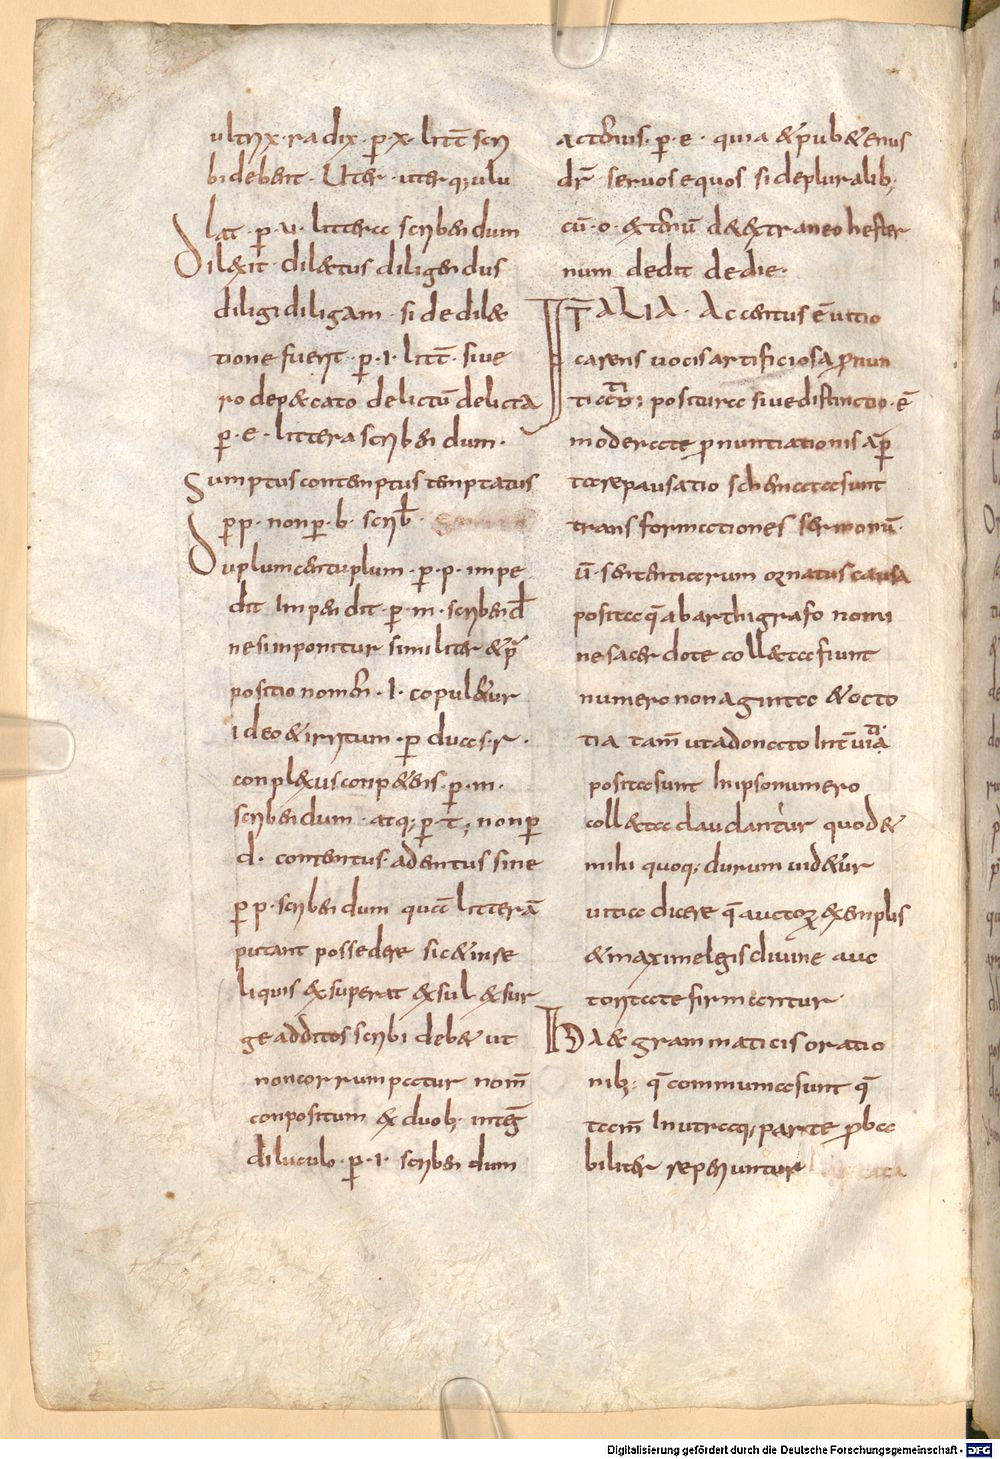 ultrix · radix · p̱ · x · litt̄ scri
bi debent · Uter · uterq; ulu
lat · p̱ · u · littera scribendum
Dilexit · dilectus diligendus
diligi diligam · si de dilec
tione fuerit · p̱ · i · litt̄ · sive
ro de peccato delictū delicta
p̱ · e · littera scribendum ·
Sumptus contemptus temptatus
p̱ p · non p̱ · b · scrib̄ ·
Duplum centuplum · p̱ · p · impe
dit impendit · p̱ · m · scribend̄
ne si imponitur similiter & p̄
positio nomin̄ · i · copuletur
ideo & irritum · p̱ duas · r ·
conplexus conpetens · p̱ · m ·
scribendum · atq; p̱ · t; non p̱
d · contentus · adentus sine
p̱ p · scribendum quā litterā
putant possedere sic & in se
liquis exsuperat exsul exsur
ge additos scribi debet ut
non corrumpatur nom̄
conpositum ex duob; inteḡ
diluculo · p̱ · i · scribendum
actorius · p̱ · e · quia & pubetenus
dr̄ servos equos si de pluralib;
cū · o · extorū de extraneo hester
num dedit de die ·
ITALIA · Accentus ē vitio
carens vocis artificiosa pronun
tiatio; positura sive distinctio · ē
moderate pronuntiationis ap̱
ta repausatio schemata sunt
transformationes sermonū ·
ū · sententiarum ornatus causa
posita q̄ ab arthigrafo nomi
ne sacerdote collecta fiunt
numero nonaginta & octo
tia tam̄ ut a donato int̄ uitia
posita sunt in ipso numero
collecta claudantur quod &
mihi quoq; durum uidetur
uitia dicere q̄ auctor exemplis
& maxime legis divine auc
toritate firmantur ·
Hac & grammaticis oratio
nib; q̄ communia sunt q̄
tam̄ in utraq; parte proba
biliter reperiuntur
Digitalisierung gefördert durch die Deutsche Forschungsgemeinschaft - DFG